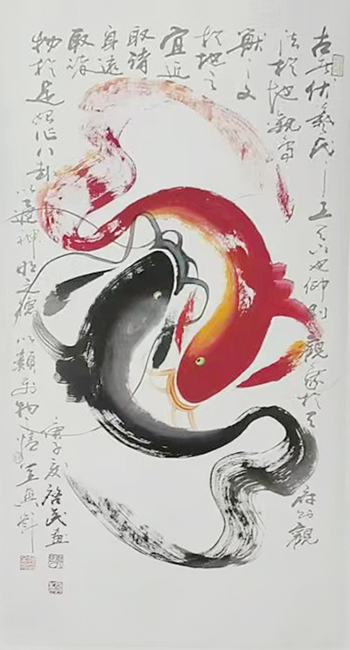 古者伏羲氏之王天下也仰則觀象於天府則觀
法於地觀鳥
獸之文
於地之
宜近
取諸
身遠
取諸
物於是始作八卦以通神明之德以類萬物之情
庚子 民畫